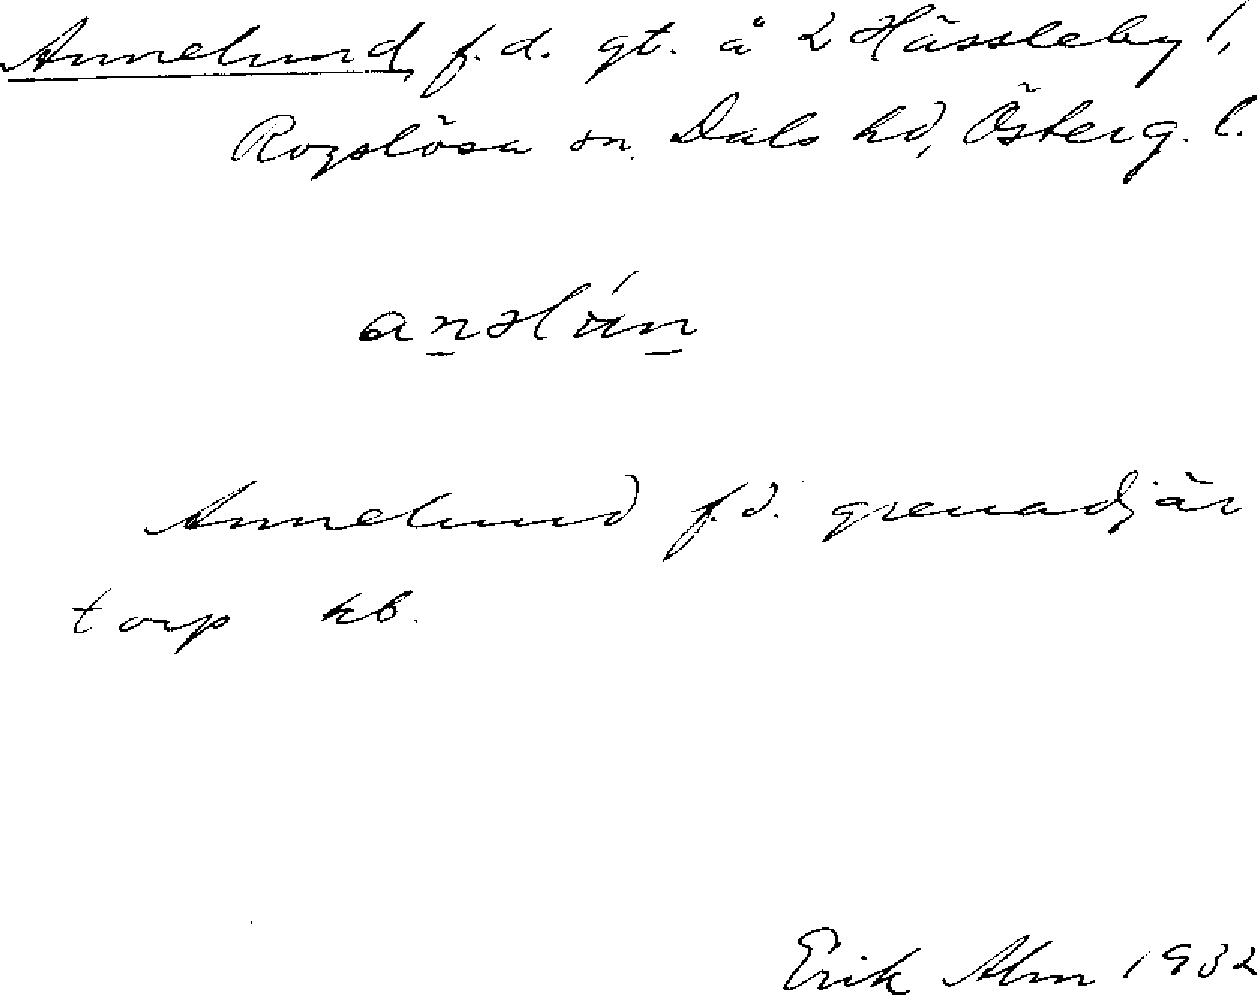 Annelund f.d. gt. å 2 Hässleby 1,
Rogslösa sn. Dals hd, Österg. l.
Annelund f.d. grenadjär
torp kb.
Erik Alm 1932